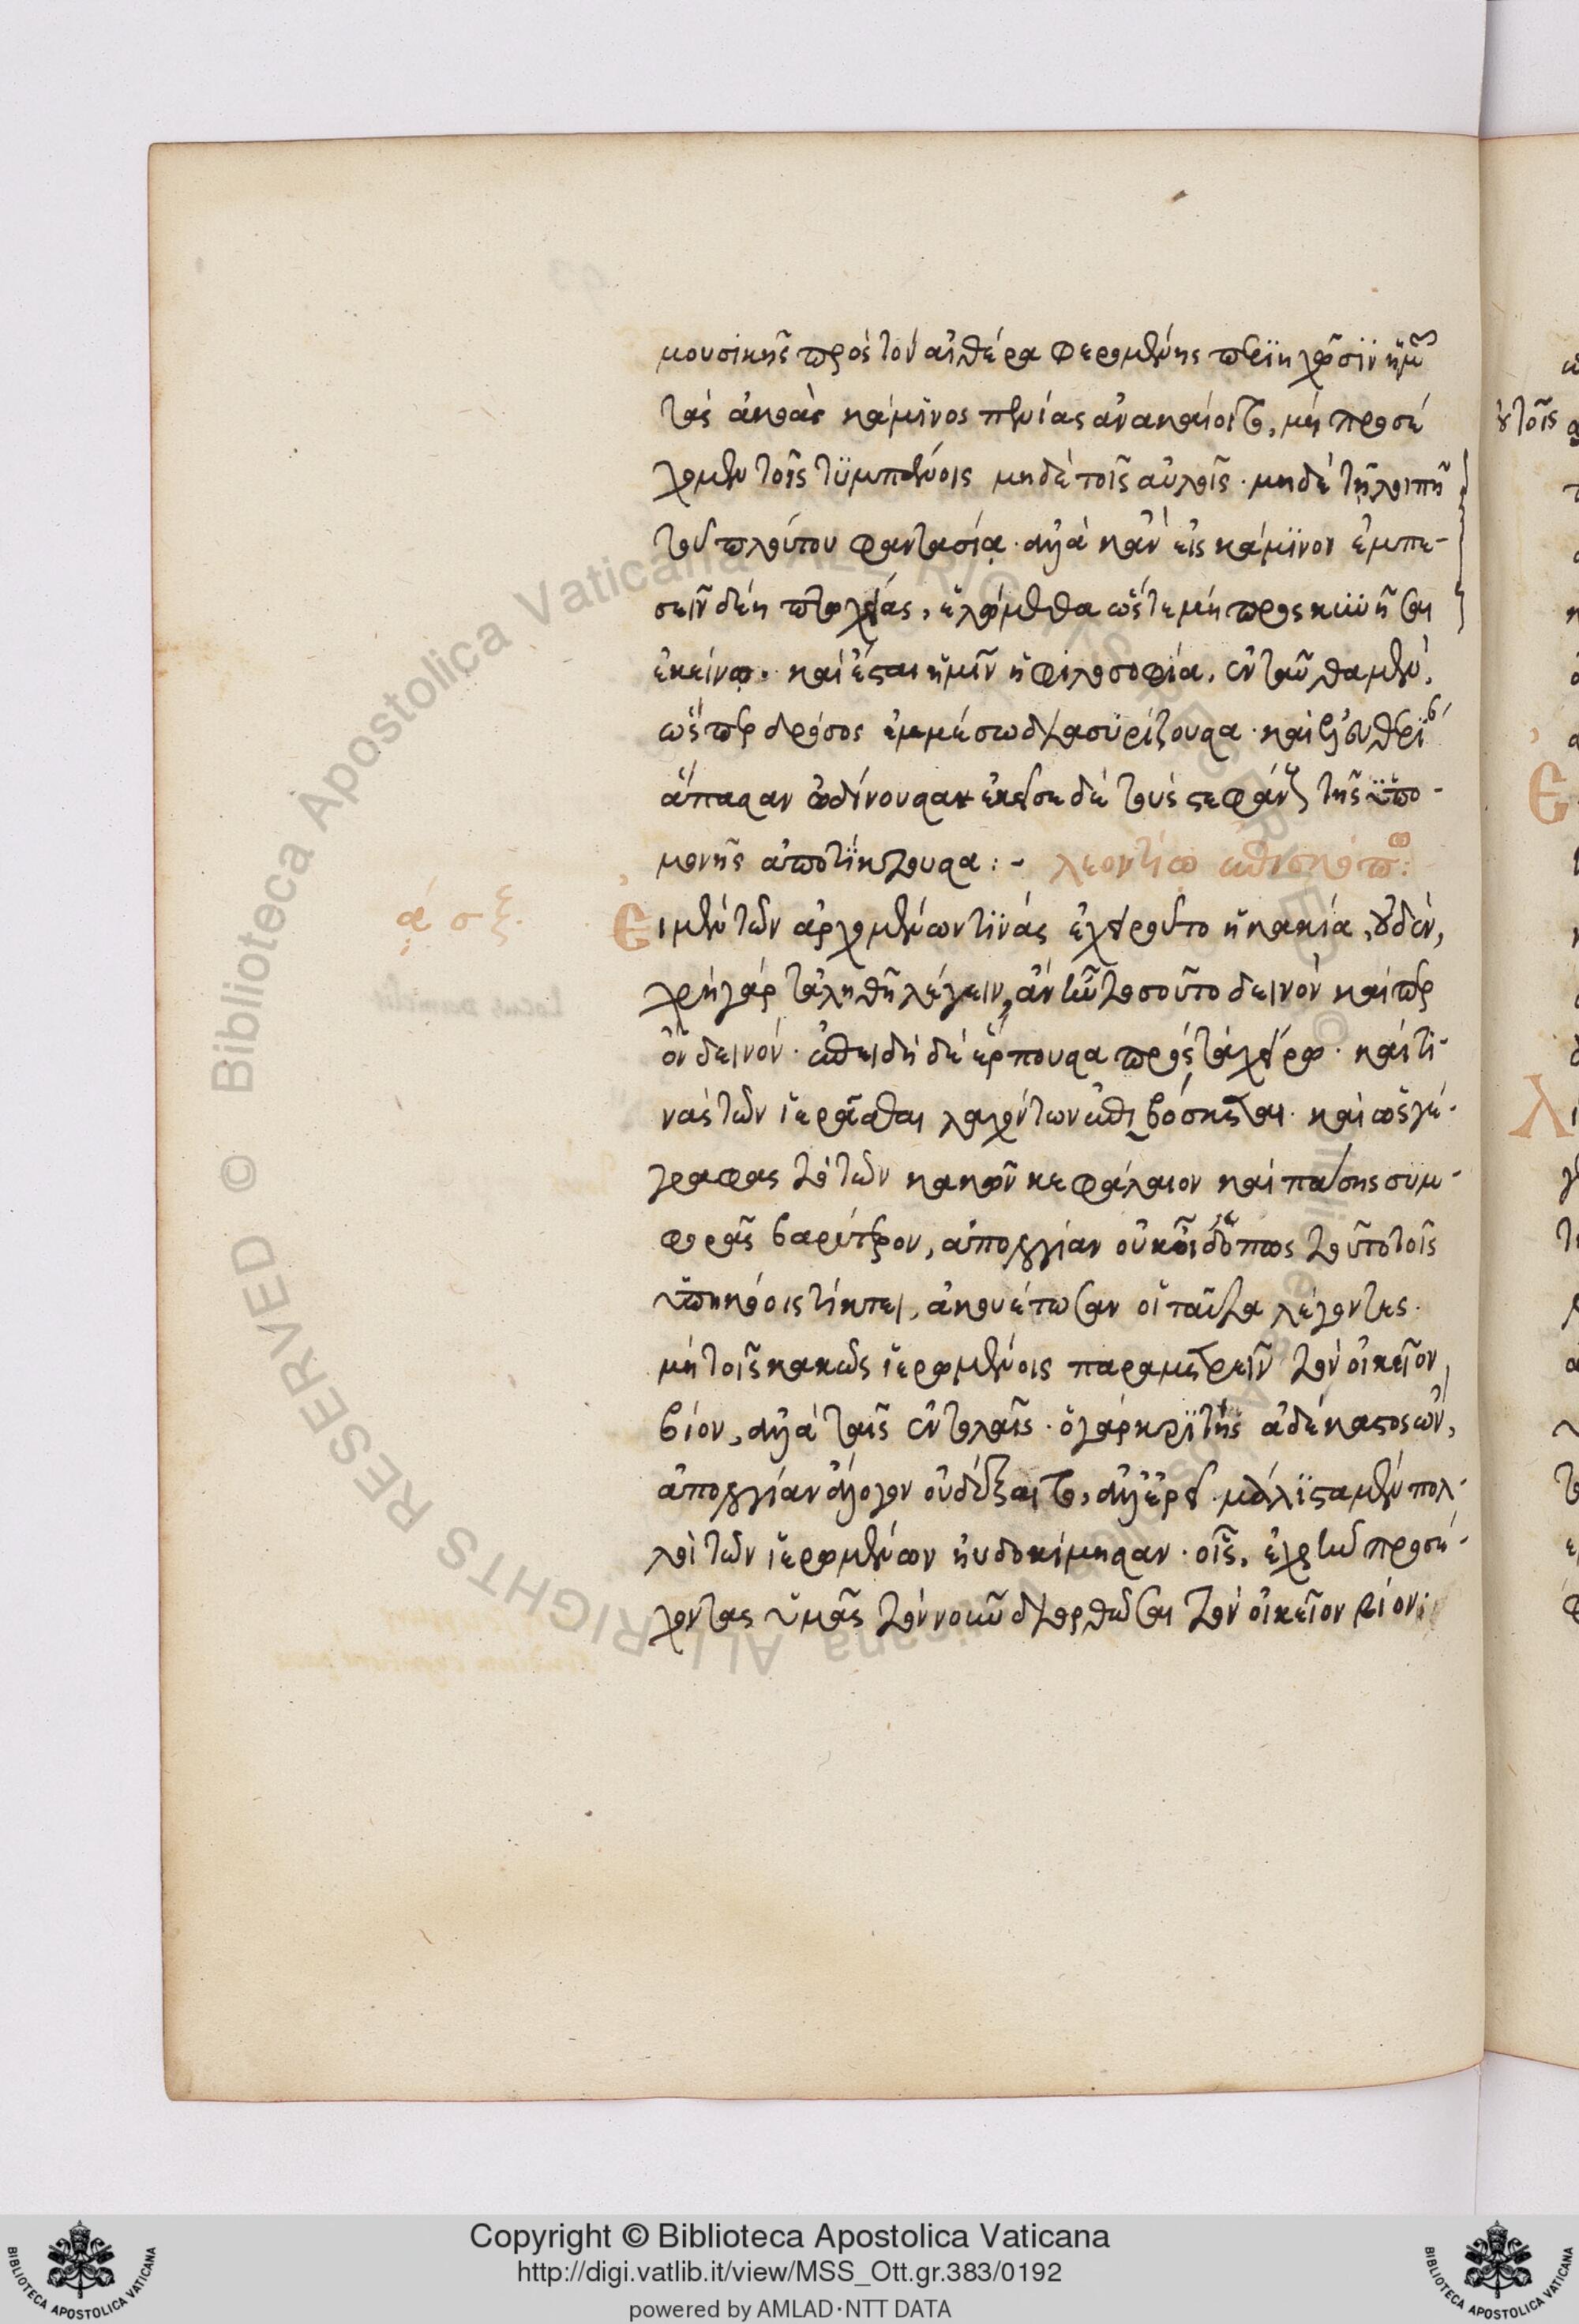 μουσικῆς πρὸς τὸν αἰθέρα φερομένης περιηχῶσιν ἡμῶν
τὰς ἀκοὰς κάμινος πενίας ἀνακαίοιτο, μὴ προσέ
χωμεν τοῖς τυμπάνοις μηδὲ τοῖς αὐλοῖς· μηδὲ τῇ λοιπῇ
τοῦ πλούτου φαντασίᾳ· ἀλλὰ κἂν εἰς κάμινον ἐμπε-
σεῖν δέῃ πτωχείας, ἑλώμεθα ὥστε μὴ προσκυνῆσαι
ἐκείνῳ. καὶ ἔσται ἡμῖν ἡ φιλοσοφία, ἐνταῦθα μὲν,
ὥσπερ δρόσος ἐμμέσω διασυρίζουσα· καὶ
ἅπασαν ὠδίνουσαν ἐκεῖσε δὲ τοὺς στεφάνους τῆς ὑπο-
μονῆς ἀποτίκτουσα :-  λεοντίῳ ἐπισκόπῳ:
ά σξ. Εἰ μὲν τῶν ἀρχομένων τινὰς ἐχειροῦτο ἡ κακία, οὐδὲν,
χρὴ γὰρ τἀληθῆ λέγειν, ἂν ἦν τοσοῦτο δεινὸν καίπερ
ὂν δεινόν· ἐπειδὴ δὲ ἕρπουσα πρὸς τὰ χείρω· καί τι-
νας τῶν ἱερᾶσθαι λαχόντων ἐπιβόσκεται· καὶ ὡς γέ-
γραφας τὸ τῶν κακῶν κεφάλαιον καὶ πάσης συμ-
φορᾶς βαρύτερον, ἀπολογίαν οὐκ οἶδ' ὅπως τοῦτο τοῖς
ὑπηκόοις τίκτει, ἀκουέτωσαν οἱ ταῦτα λέγοντες·
μὴ τοῖς κακῶς ἱερωμένοις παραμετρεῖν τὸν οἰκεῖον
βίον, ἀλλὰ ταῖς ἐντολαῖς· ὁ γὰρ κριτὴς ἀδέκαστος ὢν,
ἀπολογίαν ἄλογον οὐ δέξαιτο, ἀλλ' ἐρεῖ· μάλιστα μὲν πολ-
λοὶ τῶν ἱερωμένων ηὐδοκίμησαν· οἷς, ἐχρῆν προσέ-
χοντας ὑμᾶς τὸν νοῦν διορθῶσαι τὸν οἰκεῖον βίον·
Copyright © Biblioteca Apostolica Vaticana
http://digi.vatlib.it/view/MSS_Ott.gr.383/0192
powered by AMLAD·NTT DATA